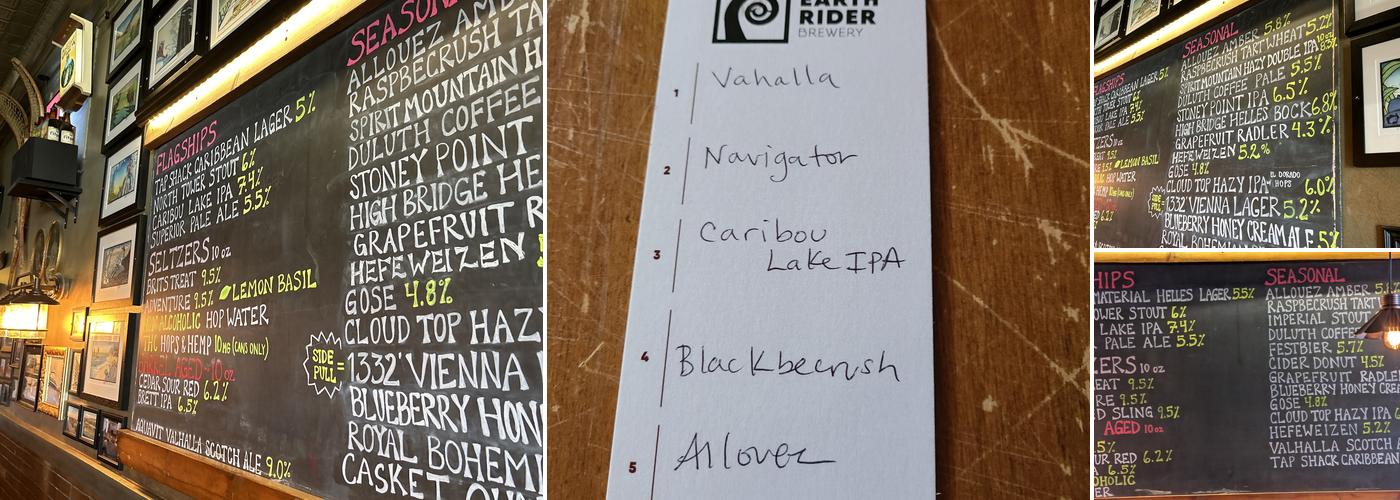 FLAGSHIPS
TAP SHACK CARIBBEAN LAGER 5%
NORTH TOWER STOUT 6%
CARIBOU LAKE IPA 7.4%
SUPERIOR PALE ALE 5.5%
SELTZERS 10 oz
BRITS TREAT 9.5%
ADVENTURE 9.5% LEMON BASIL
NON ALCOHOLIC HOP WATER
THC HOPS & HEMP 10mg (CANS ONLY)
BARREL AGED 10 oz
CEDAR SOUR RED 6.2%
BRETT IPA 6.5%
AQUAVIT VALHALLA SCOTCH ALE 9.0%
SEASON
ALLOUEZ AMB
RASPBECRUSH TA
SPIRIT MOUNTAIN H
DULUTH COFFEE
STONEY POINT
HIGH BRIDGE HE
GRAPEFRUIT R
HEFEWEIZEN
GOSE 4.8%
CLOUD TOP HAZ
SIDE PULL = 1332 VIENNA
BLUEBERRY HON
ROYAL BOHEMI
CASKET
EARTH
RIDER
BREWERY
1 Vahalla
2 Navigator
3 Caribou
Lake IPA
4 Blackbecrush
5 Allouez
SEASONAL
ALLOUEZ AMBER 5.8%
RASPBECRUSH TART WHEAT 5.2%
SPIRIT MOUNTAIN HAZY DOUBLE IPA 10oz 8.3%
DULUTH COFFEE PALE 5.5%
STONEY POINT IPA 6.5%
HIGH BRIDGE HELLES BOCK 6.8%
GRAPEFRUIT RADLER 4.3%
HEFEWEIZEN 5.2%
GOSE 4.8%
CLOUD TOP HAZY IPA EL DORADO HOPS 6.0%
SIDE PULL = 1332 VIENNA LAGER 5.2%
BLUEBERRY HONEY CREAM ALE 5%
ROYAL BOHEMIAN
GSHIPS
CARIBBEAN LAGER 5%
STOUT 6%
IPA 7.4%
ALE 5.5%
10 oz
9.5%
9.5% LEMON BASIL
HOP WATER
HEMP 10mg (CANS ONLY)
6.2%
HIPS
MATERIAL HELLES LAGER 5.5%
OWER STOUT 6%
LAKE IPA 7.4%
PALE ALE 5.5%
ZERS 10 oz
EAT 9.5%
RE 9.5%
D SLING 9.5%
AGED 10 oz
5%
UR RED 6.2%
6.5%
OHOLIC
ER
SEASONAL
ALLOUEZ AMBER 5.8%
RASPBECRUSH TART
IMPERIAL STOUT
DULUTH COFFEE
FESTBIER 5.7%
CIDER DONUT 4.5%
GRAPEFRUIT RADLER
BLUEBERRY HONEY CREA
GOSE 4.8%
CLOUD TOP HAZY IPA 6
HEFEWEIZEN 5.2%
VALHALLA SCOTCH A
TAP SHACK CARIBBEAN